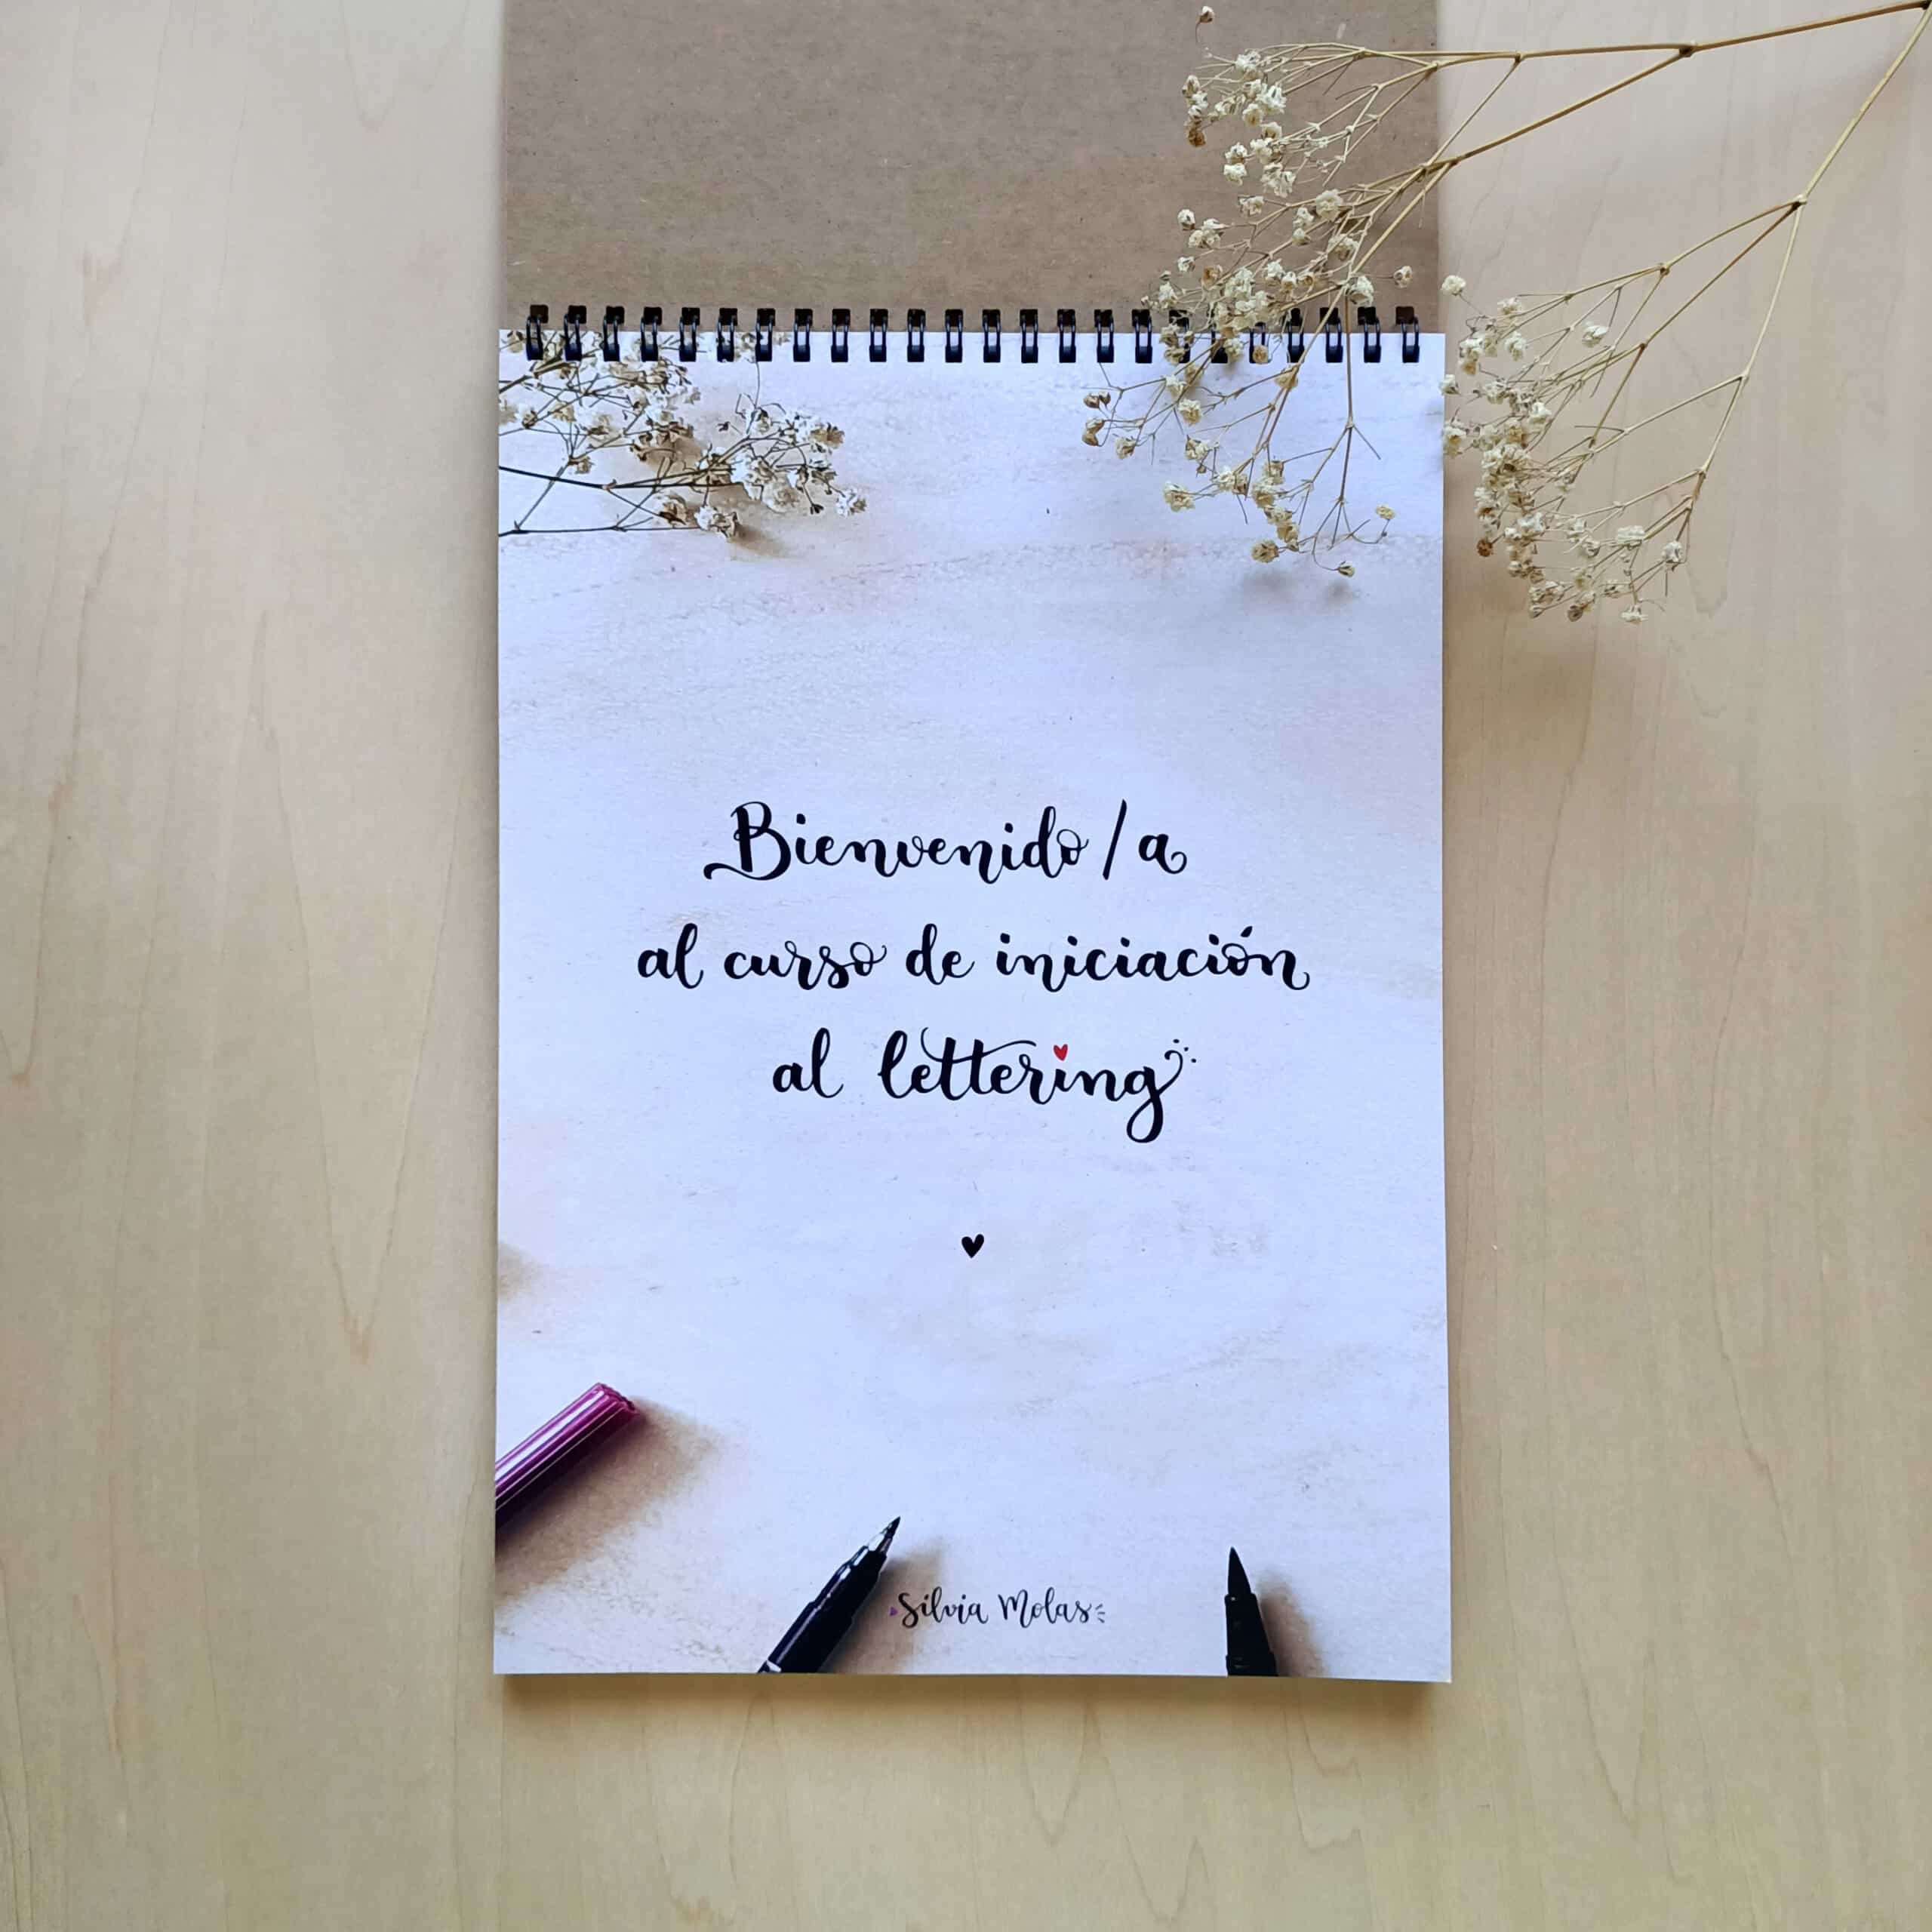 Bienvenido/a
al curso de iniciación
al lettering
Silvia Molas